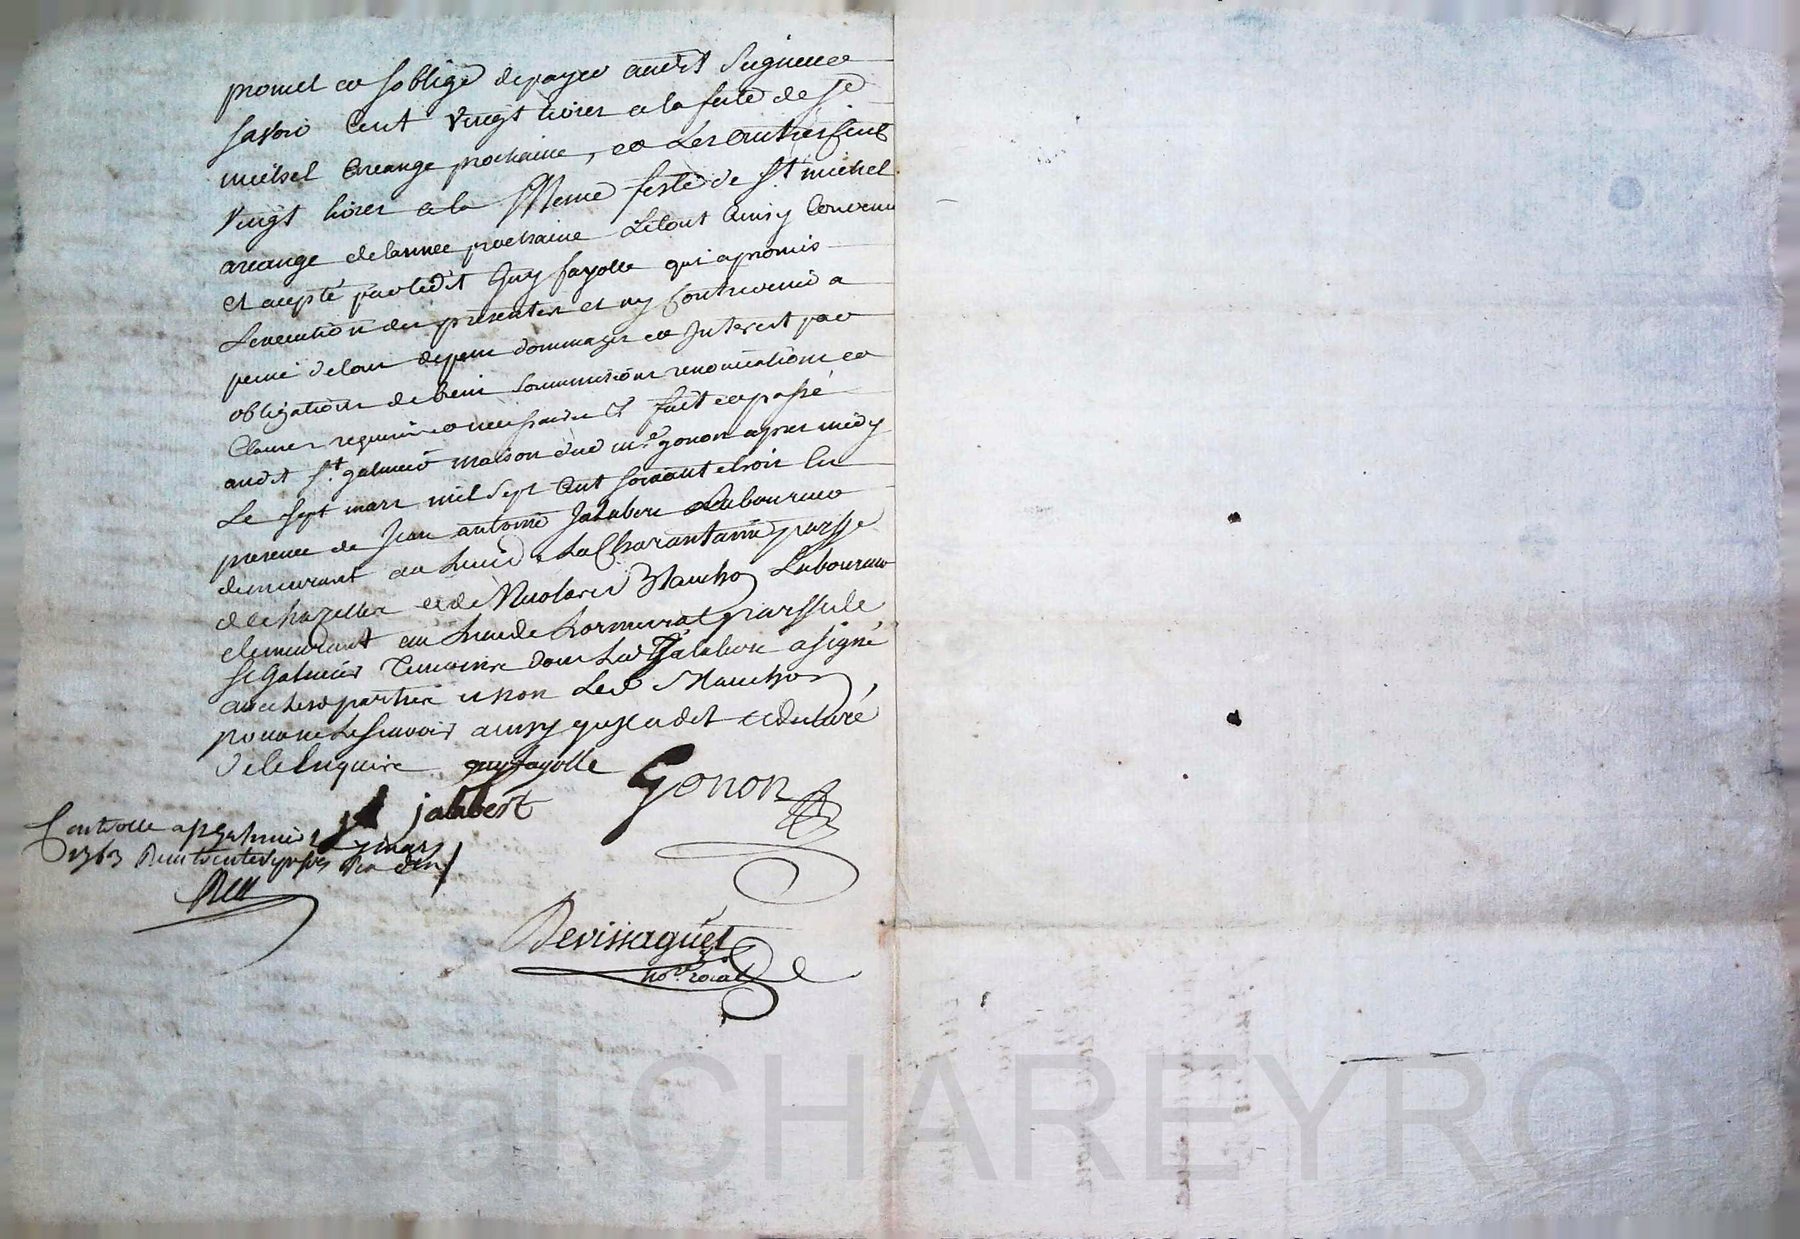 promet et soblige de payer audit Seigneur
savoir Cent vingt livres a la feste de St
michel Arcange prochaine, et Les autres Cent
vingt livres a la Meme feste de St michel
arcange de lannée prochaine Letout Ainsy Convenu
et acepté par ledit Guy fayolle qui apromis
Lexecution des presentes et ny Contrevenir a
peine de tous depens dommages et Interest par
obligations de biens soummissions renonciations et
Clauses requises et necessaires fait et passé
audit St galmier maison dud mre gonon apres midy
Le sept mars mil sept Cent soixante trois En
presence de Jean antoine Jalabert Laboureur
demeurant au Lieu de La Charantanie parsse
de chazelles et de Nicolas Blanchon Laboureur
demeurant au Lieu de Cormurat parsse de
St Galmier Temoins dont Led Jalabert a signé
avec Les parties et non Led Blanchon
pour ne Le scavoir ainsy quil a dit et declaré
de ce Enquis guy fayolle Gonon
jalabert
Controlle a St Galmier Le 7 mars
1763 Reçu trente
Devissaguet
nore roial
Pascal CHAREYRON